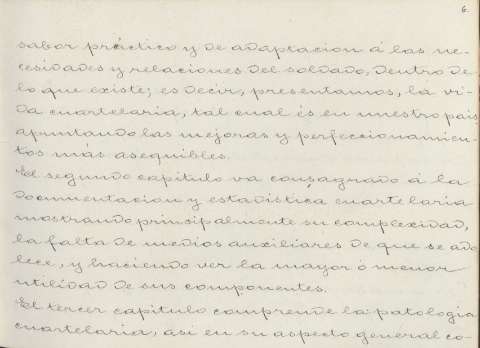 6.
sabor práctico y de adaptacion á las ne-
cesidades y relaciones del soldado, dentro de
lo que existe; es decir, presentamos, la vi-
da cuartelaria, tal cual és en nuestro pais
apuntando las mejoras y perfeccionamien-
tos más asequibles.
El segundo capitulo va consagrado á la
documentacion y estadistica cuartelaria
mostrando principalmente su complexidad,
la falta de medios auxiliares de que se ado
lece, y haciendo ver la mayor ó menor
utilidad de sus componentes.
El tercer capitulo comprende la patologia
cuartelaria, asi en su aspecto general co-